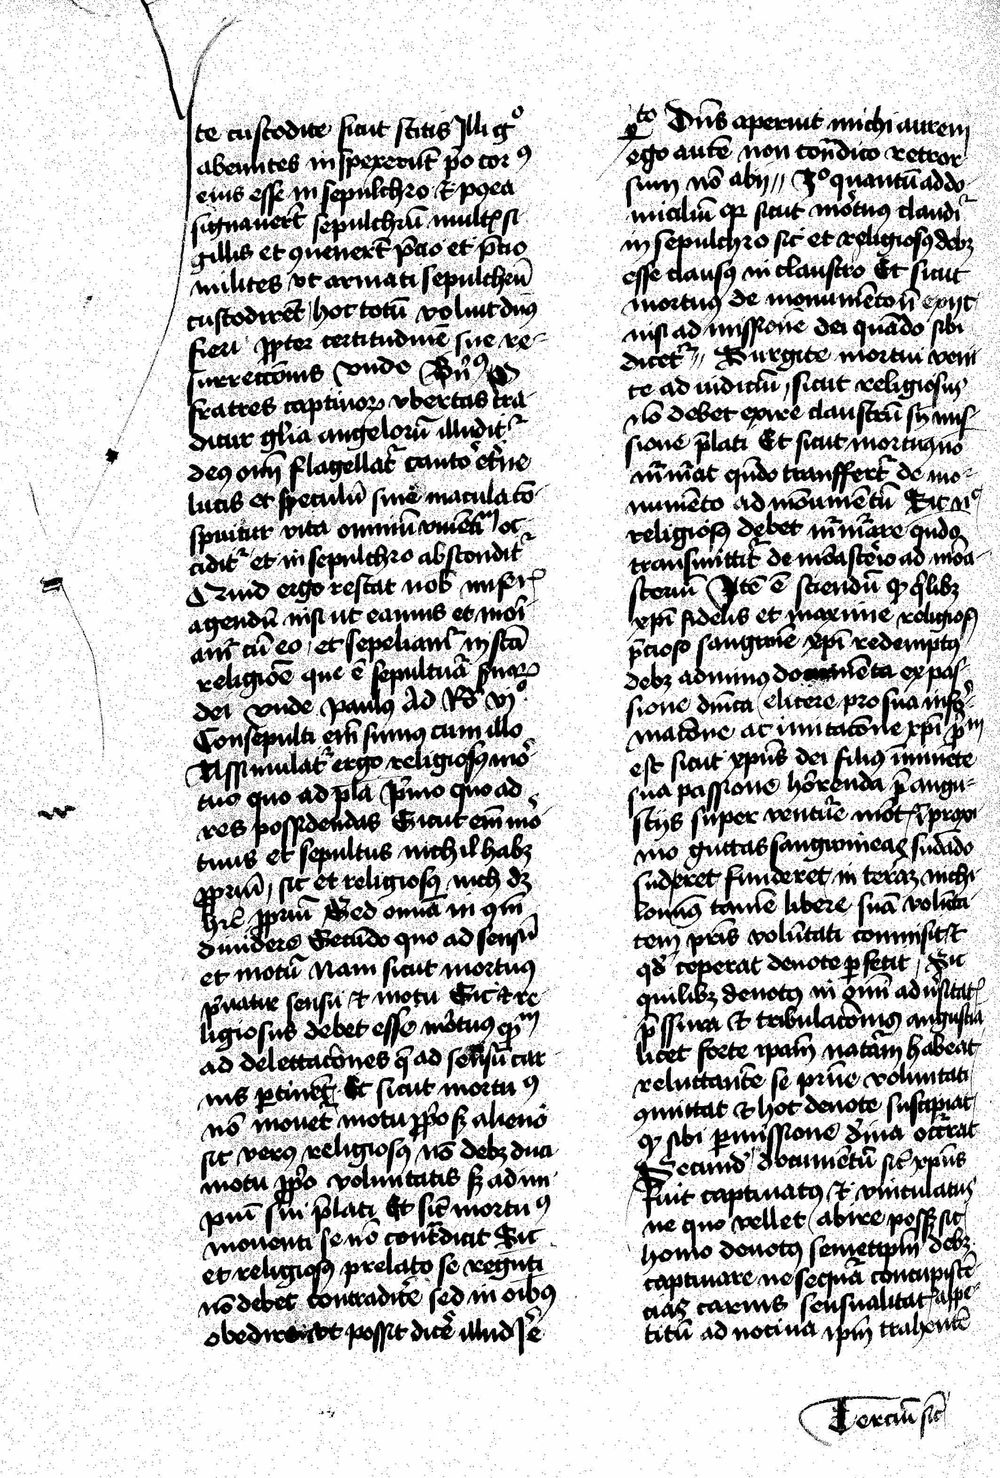 te custodite sicut scitis Illi g°
abeuntes inspexerūt p̄o corꝰ
eius esse in sepulchro et p9ea
signauerūt sepulchrū multꝭ si
gillis et 9uenerūt p̄cio et p̄cio
milites vt armati sepulchrū
custodirēt hoc totū voluit dn̄s
fieri ꝓpter certitudinē sue re-
surrectōnis vnde
fratres captiuorꝝ vbertas tra
ditur gl̄ia angelorū illudit᷑
deꝰ om̄ flagellat᷑ et̄ne
lucis et speculū sine macula cō-
spuitur vita omniū viuētiū oc
cidit᷑ et in sepulchro abscondit᷑
Quid ergo restat nob̄ miser̄
agendū nisi ut eamus et mori
am᷑ cū eo et sepeliam᷑ in sctā
religiōe que ē sepultura
dei vnde paulus Ad Ro vi°
Consepulti em̄ sumus cum illo
Assimulat᷑ ergo religiosꝰ mor
tuo quo ad p̄mo quo ad
res possidendas Sicut em̄ mor
tuus et sepultus nichil habꝫ
ꝓpriū, sic et religiosꝰ nich dꝫ
hr̄e ꝓpriū Sed omīa in 9mi
diuidere Secūdo quo ad sensū
et motū Nam sicut mortuus
p̄uatur sensu et motu Sic et re
ligiosus debet esse mortuus
ad delectacōnes q̄ ad sensū car
nis ꝑtinēt Et sicut mortuꝰ
nō mouet᷑ motu ꝓprio sꝫ alieno
sic verꝰ religiosꝰ nō debꝫ duci
motu ꝓprio voluntatis sꝫ ad im
piū sui p̄lati Et sic̄ mortuꝰ
mouenti se nō contradicit Sic
et religiosꝰ prelato se regenti
nō debet contradicere sed in oibꝰ
obedire vt possit dicere illud Is̄e
Dn̄s aperuit michi aurem
ego autē non contradico retror
sum nō abij // quantū ad do-
miciliū qꝛ sicut mortuus claudit᷑
in sepulchro sic et religiosꝰ debꝫ
esse clausꝰ in claustro Et sicut
mortuus de monumēto nō exijt
nisi ad missionē dei quādo sibi
dicet᷑ // Surgite mortui veni
te ad iudiciū, sicut religiosus
nō debet exire claustrū sn̄ mis
sione p̄lati Et sicut mortuus nō
m̄m̄at qn̄do transfert᷑ de mo-
numēto ad monumētū Sic nec
religiosꝰ debet m̄m̄are qn̄do
transmittit᷑ de monasterio ad mōa-
steriū Itē ē sciendū qꝙ q̄libꝫ
xp̄i fidelis et maxime religiosꝰ
p̄cioso sanguine xp̄i redemptus
debꝫ adminus documēta ex pas-
sione dn̄ica elicere pro sua infor
matōne ac imitacōne xp̄i p̄m
est sicut xp̄us dei filius īminēte
sua passione horrenda p̄ angu-
stijs super venture mort᷑
mo guttas sanguineas sudādo
suderet funderet in terrā nichi
lominꝰ tamē libere suā volūta
tem pr̄is volūtati commisit et
qd̄ ceperat deuote ꝑfecit, Sic
quilibꝫ deuotus in om̄i aduersitate
p̄ssura et tribulacōnis angustia
licet forte ipam naturam habeat
reluctantē se pr̄ne voluntati
9mittat et hoc deuote suscipiat
qꝙ sibi ꝑmissione diuina occurrat
Secund̄ documētū sic̄ xp̄us
fuit captiuatus et vinculatus
ne quo vellet abire posset sic
homo deuotus semetipm debꝫ
captiuare ne sequat᷑ concupiscē
cias carnis sensualitat᷑ appe
titū ad nociua ipm trahentē
Terciū sic̄